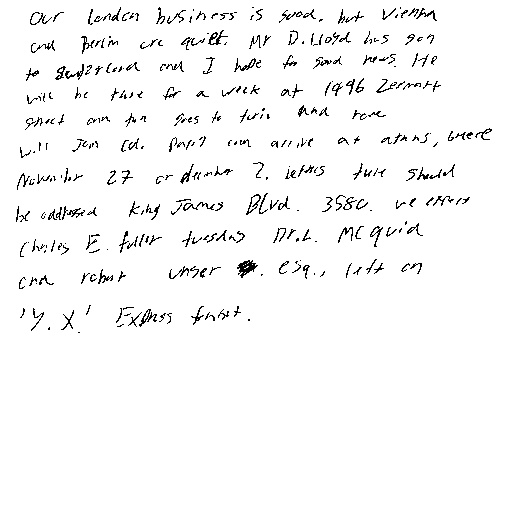 Our London business is good, but Vienna
and Berlin are quiet. Mr D. Lloyd has gon
to Switzerland and I hope for good news. He
will be there for a week at 1496 Zermott
street and then goes to turin and rome
will Join Col. Parry and arrive at athens, Greece
November 27 or december 2. letters there should
be addressed King James Blvd. 3580. we expect
Charles E. fuller tuesday Dr. L. MCQuid
and robert unger esq., left on
'Y. X.' Express tonight.